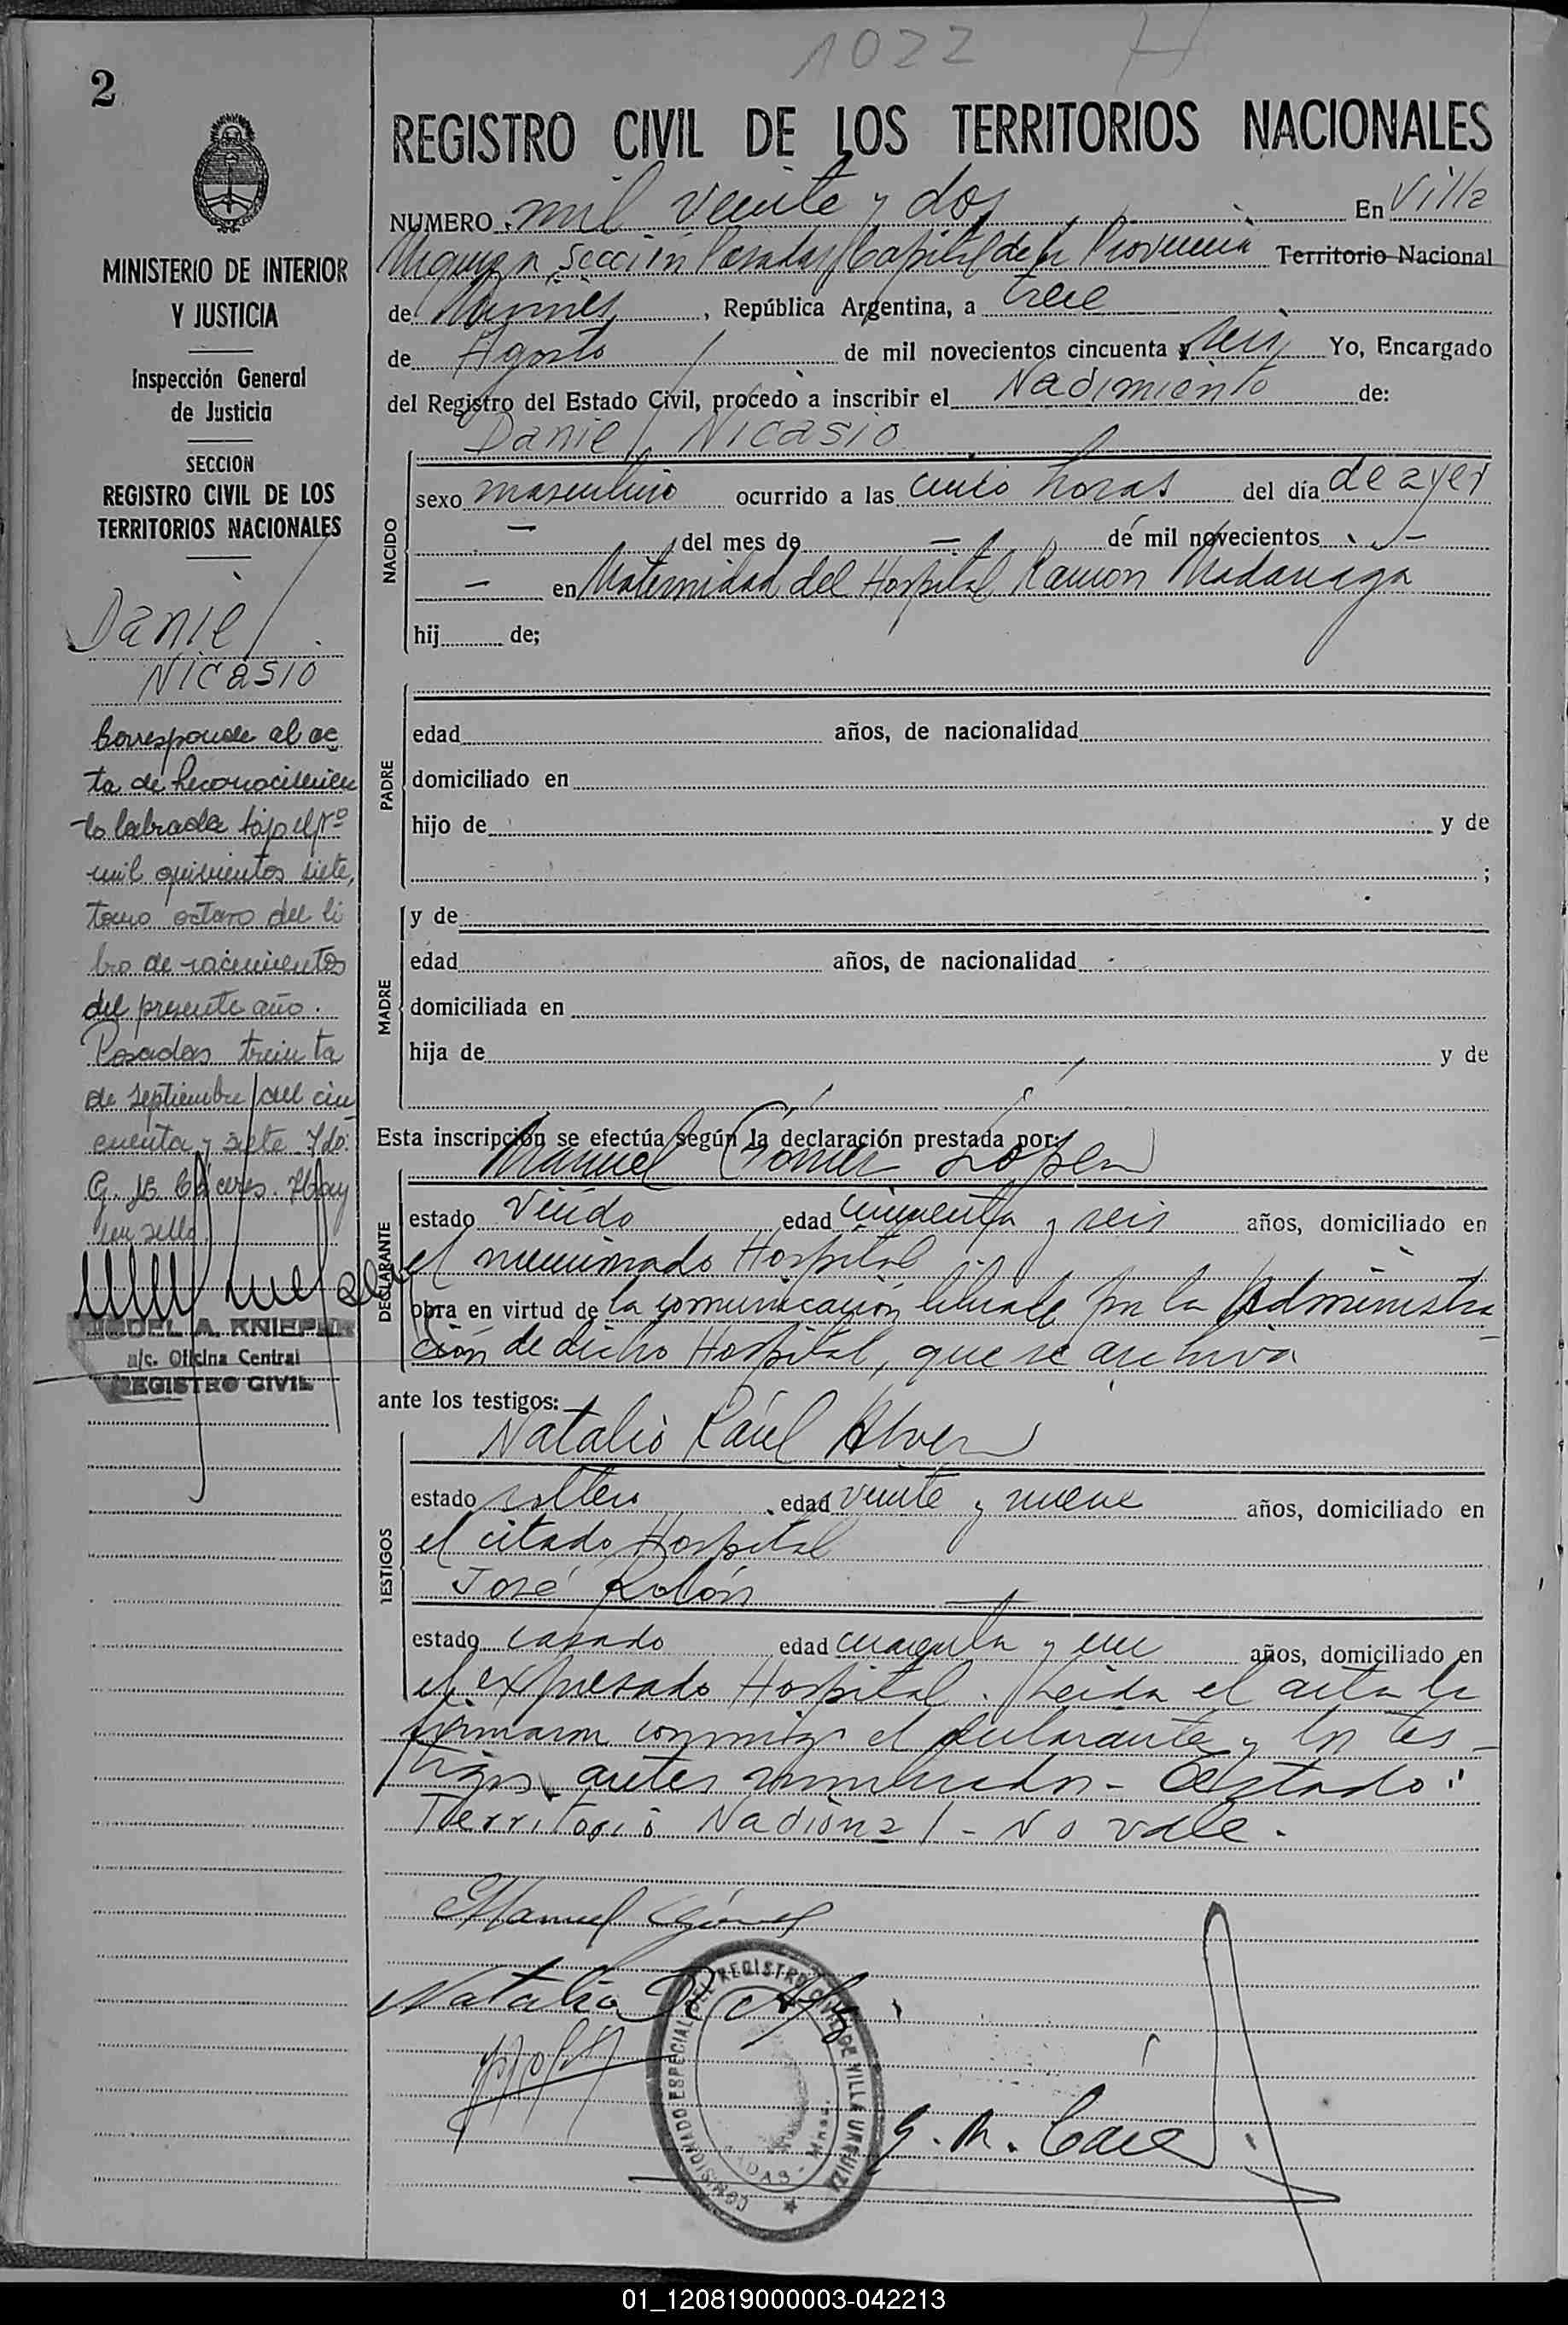 1022 H
2
MINISTERIO DE INTERIOR
Y JUSTICIA
Inspección General
de Justicia
SECCION
REGISTRO CIVIL DE LOS
TERRITORIOS NACIONALES
Daniel
Nicasio
Corresponde al ac
ta de Reconocimien
to labrada bajo el Nº
mil quinientos siete,
tomo octavo del li
bro de nacimientos
del presente año.
Posadas treinta
de septiembre del cin
cuenta y siete. Fdo:
G. M. Cáceres. Hay
un sello.
A. KNIEPP
a/c. Oficina Central
REGISTRO CIVIL
REGISTRO CIVIL DE LOS TERRITORIOS NACIONALES
NUMERO mil veinte y dos En Villa
Urquiza Sección Posadas Capital de la Provincia Territorio Nacional
de Misiones, República Argentina, a trece
de Agosto de mil novecientos cincuenta y seis Yo, Encargado
del Registro del Estado Civil, procedo a inscribir el Nacimiento de:
Daniel Nicasio
NACIDO
sexo masculino ocurrido a las cinco horas del día de ayer
— del mes de — de mil novecientos —
— en Maternidad del Hospital Ramon Madariaga
hij de;
PADRE
edad años, de nacionalidad
domiciliado en
hijo de y de
;
MADRE
y de
edad años, de nacionalidad
domiciliada en
hija de y de
Esta inscripción se efectúa según la declaración prestada por:
Manuel Gómez López
DECLARANTE
estado Viudo edad cincuenta y seis años, domiciliado en
el mencionado Hospital
obra en virtud de la comunicación librada por la Administra
ción de dicho Hospital, que se archiva
ante los testigos:
Natalio Raúl Alvez
TESTIGOS
estado soltero edad veinte y nueve años, domiciliado en
el citado Hospital
José Rolón
estado casado edad cuarenta y un años, domiciliado en
el expresado Hospital. Leida el acta la
firmaron conmigo el declarante y los tes-
tigos antes nombrados - Testado:
Territorio Nacional - No vale.
Manuel Gómez
Natalio R.
COMISIONADO ESPECIAL DEL REGISTRO CIVIL DE VILLA URQUIZA
POSADAS - Mnes.
G. M. Các
01_120819000003-042213